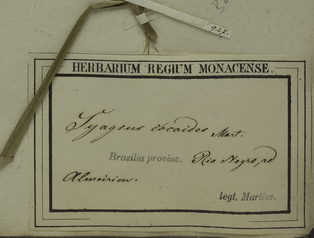 HERBARIUM REGIUM MONACENSE.
Syagrus cocoides Mart.
Brasilia provinc. Rio Negro, ad
Almeirim.
legt. Martius.